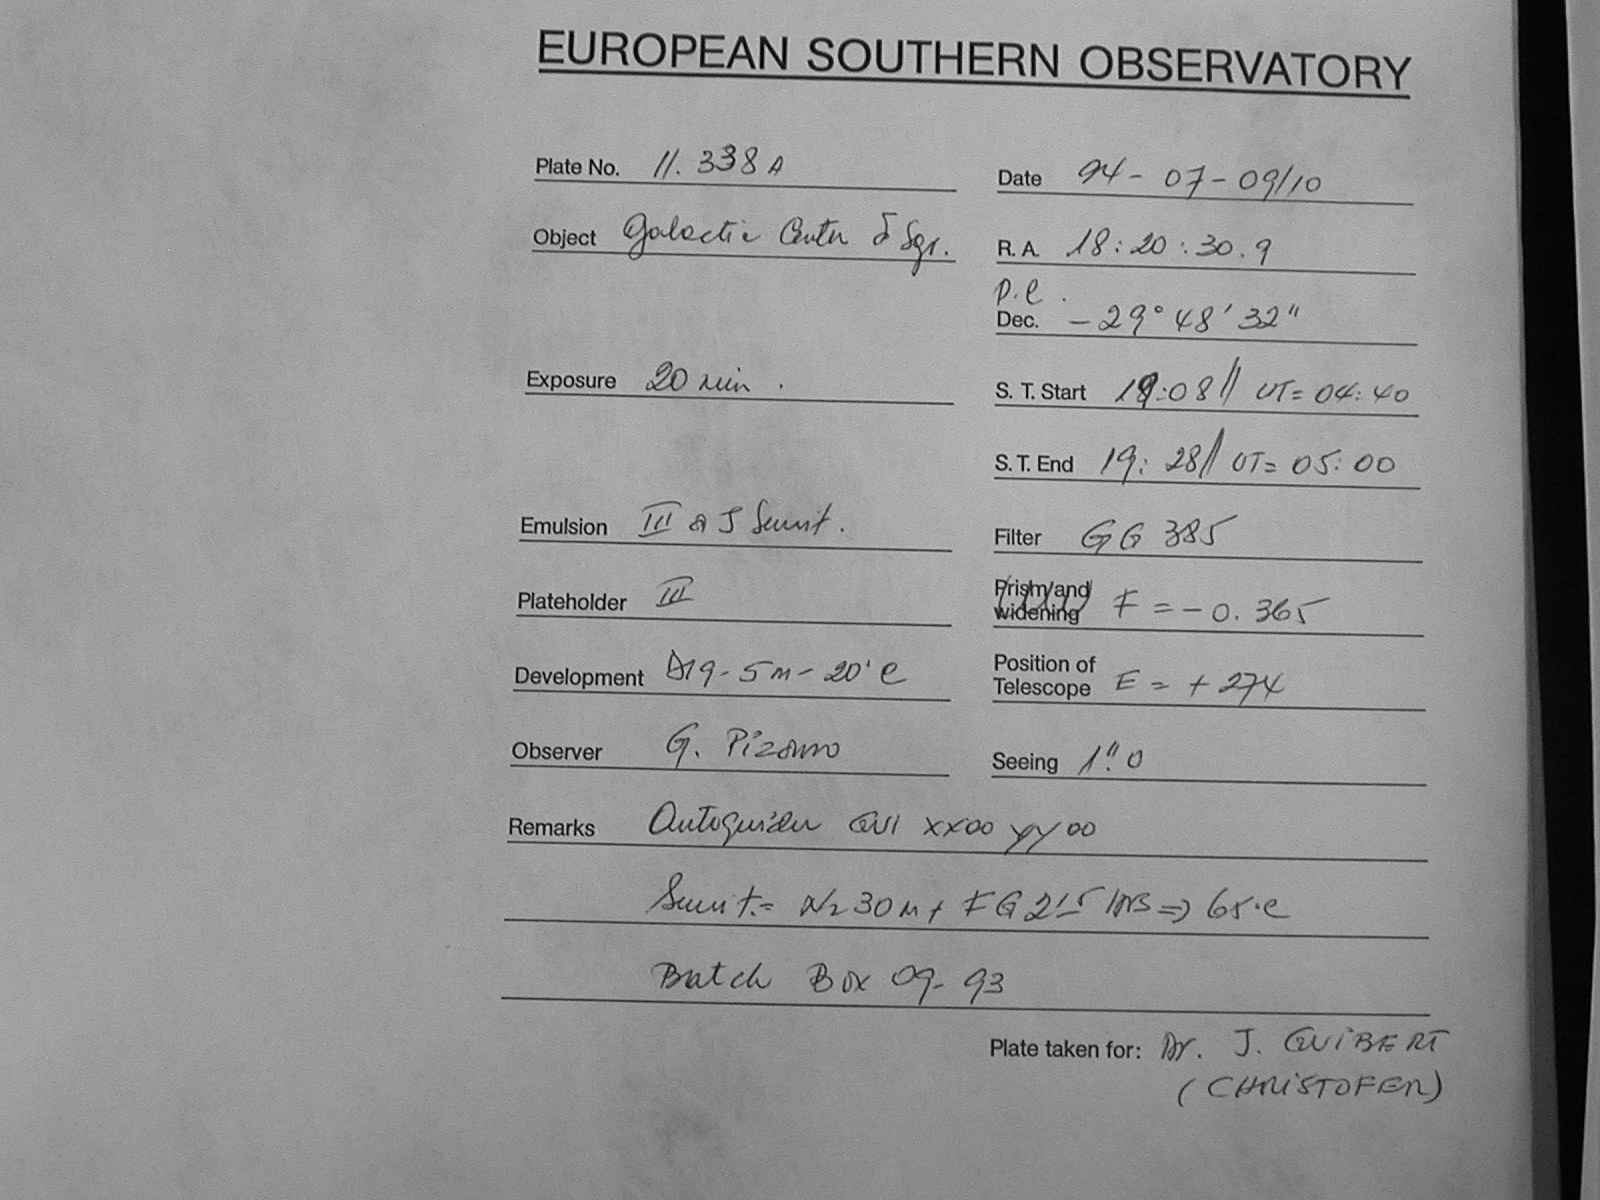 EUROPEAN SOUTHERN OBSERVATORY
Plate No. 11.338A
Date 94-07-09/10
Object Galactic Center δ Sgr.
R. A. 18:20:30.9
p.e.
Dec. -29°48'32"
Exposure 20 min.
S. T. Start 19:08// UT=04:40
S. T. End 19:28// UT=05:00
Emulsion III a J Sensit.
Filter GG 385
Plateholder III
Prism/and widening F = -0.365
Development D19-5m-20°C
Position of Telescope E = +274
Observer G. Pizarro
Seeing 1".0
Remarks Autoguider GV1 XX00 YY00
Sensit.= N2 30m + FG 2.5 HRS => 65°C
Batch Box 09-93
Plate taken for: Dr. J. GUIBERT
(CHRISTOFER)